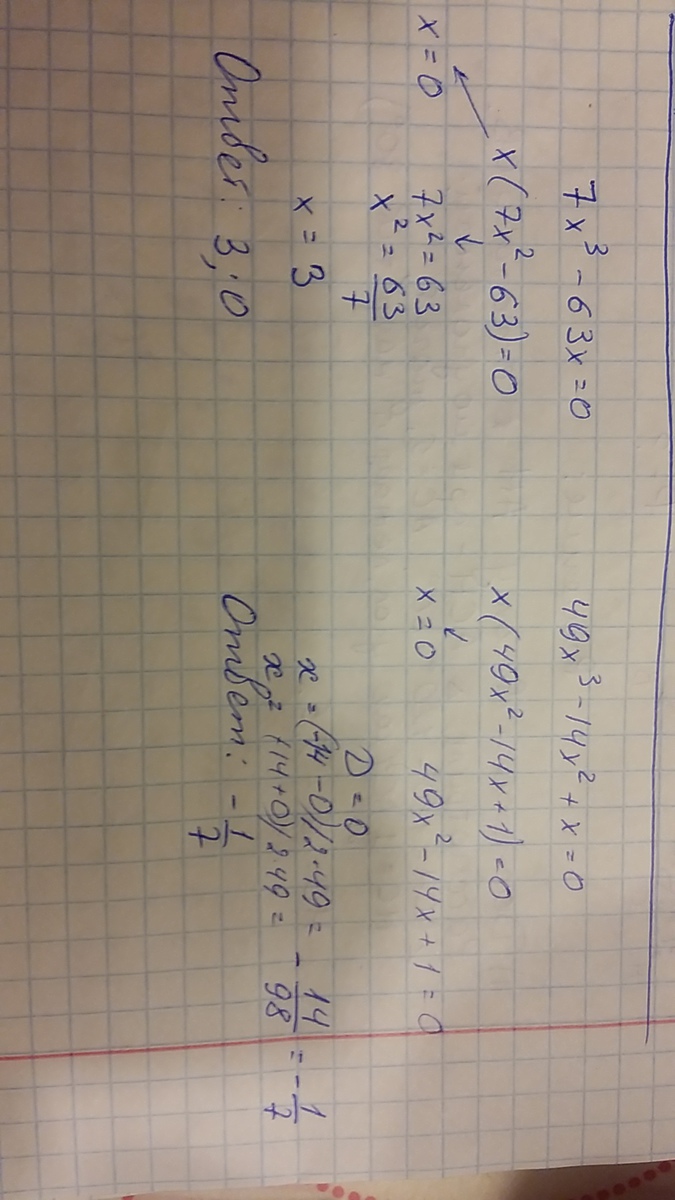 7x³ - 63x = 0
x(7x² - 63) = 0
x = 0
7x² = 63
x² = 63/7
x = 3
Ответ: 3; 0
49x³ - 14x² + x = 0
x(49x² - 14x + 1) = 0
x = 0 49x² - 14x + 1 = 0
D = 0
x = (-14 - 0)/2·49 = - 14/98 = - 1/7
x² + 14 + 0)/2·49 =
Ответ: - 1/7